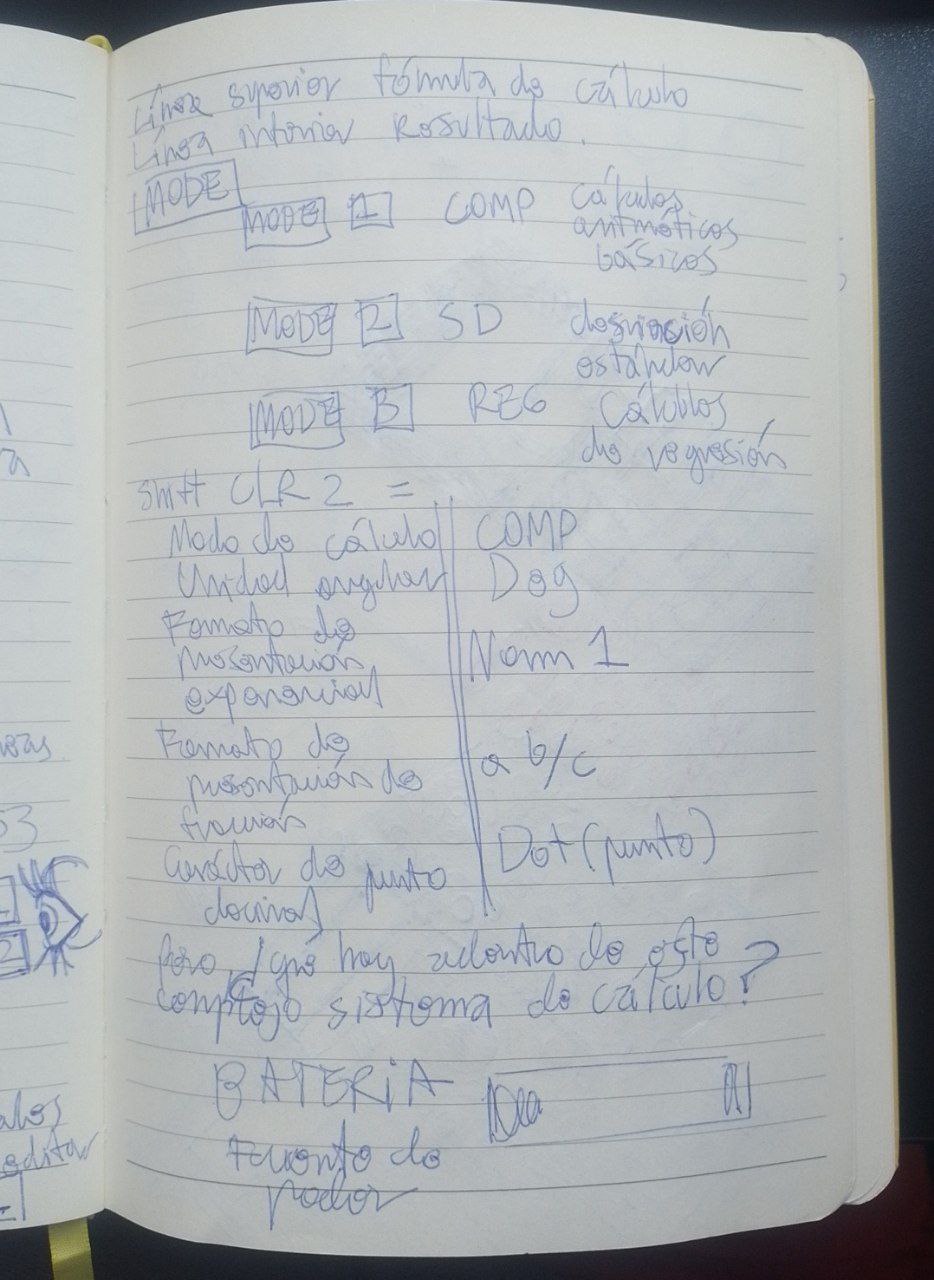 Línea superior fórmula de cálculo
Línea inferior Resultado.
MODE
MODE 1 COMP cálculos
aritméticos
básicos
MODE 2 SD desviación
estándar
MODE 3 REG Cálculos
de regresión
shift CLR 2 =
Modo de cálculo COMP
Unidad angular Deg
Formato de
presentación Norm 1
exponencial
Formato de
presentación de a b/c
fracción
Carácter de punto Dot (punto)
decimal
Pero, ¿qué hay adentro de este
complejo sistema de cálculo?
BATERiA
Fuente de
poder